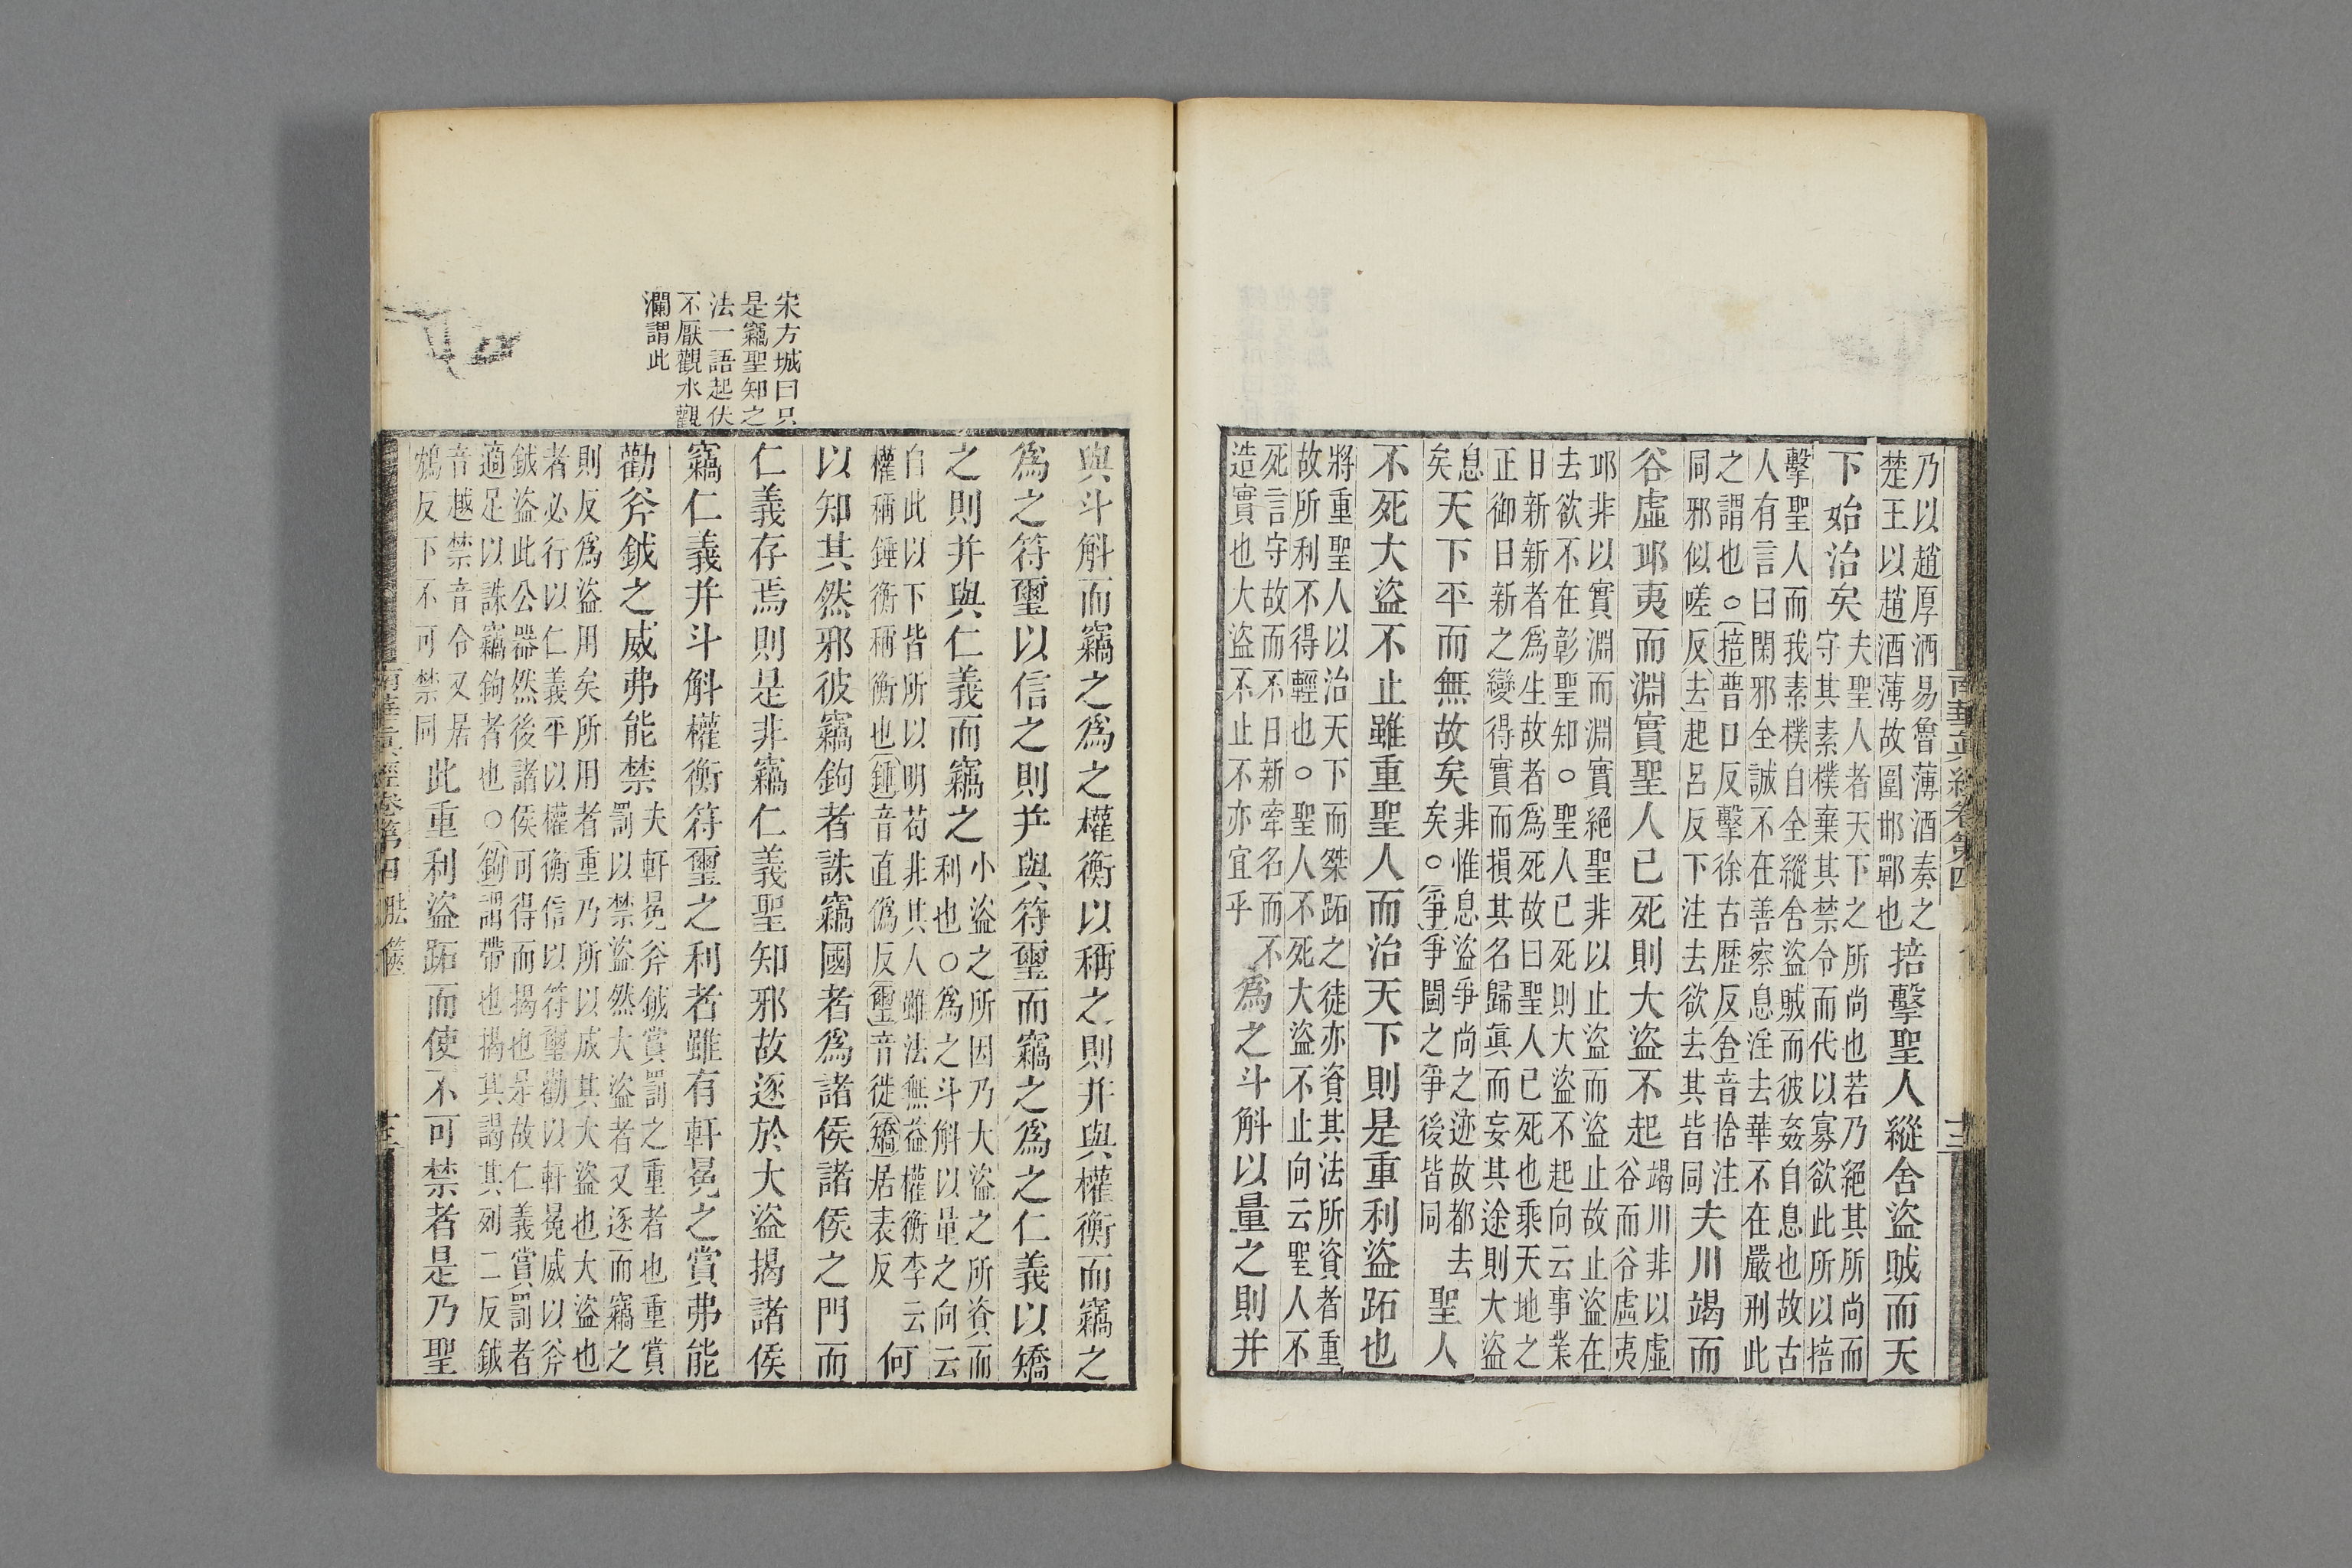 南華真經卷第四
十三
乃以趙厚酒易魯薄酒奏之
楚王以趙酒薄故圍邯鄲也
掊擊聖人縱舍盜賊而天
下始治矣
夫聖人者天下之所尚也若乃絕其所尚而
守其素樸棄其禁令而代以寡欲此所以掊
擊聖人而我素樸自全縱舍盜賊而彼姦自息也故古
人有言曰閑邪全誠不在善察息淫去華不在嚴刑此
之謂也○掊普口反擊徐古歷反舍音捨注
同邪似嗟反去起呂反下注去欲去其皆同
夫川竭而
谷虛邱夷而淵實聖人已死則大盜不起
竭川非以虛
谷而谷虛夷
邱非以實淵而淵實絕聖非以止盜而盜止故止盜在
去欲不在彰聖知○聖人已死則大盜不起向云事業
日新新者爲生故者爲死故曰聖人已死也乘天地之
正御日新之變得實而損其名歸眞而妄其途則大盜
息
矣
天下平而無故矣
非惟息盜爭尚之迹故都去
矣○爭爭鬭之爭後皆同
聖人
不死大盜不止雖重聖人而治天下則是重利盜跖也
將重聖人以治天下而桀跖之徒亦資其法所資者重
故所利不得輕也○聖人不死大盜不止向云聖人不
死言守故而不日新牽名而不
造實也大盜不止不亦宜乎
爲之斗斛以量之則并
與斗斛而竊之爲之權衡以稱之則并與權衡而竊之
爲之符璽以信之則并與符璽而竊之爲之仁義以矯
之則并與仁義而竊之
小盜之所因乃大盜之所資而
利也○爲之斗斛以量之向云
自此以下皆所以明苟非其人雖法無益權衡李云
權稱錘衡稱衡也錘音直僞反璽音徙矯居表反
何
以知其然邪彼竊鉤者誅竊國者爲諸侯諸侯之門而
仁義存焉則是非竊仁義聖知邪故逐於大盜揭諸侯
宋方城曰只
是竊聖知之
法一語起伏
不厭觀水觀
瀾謂此
竊仁義并斗斛權衡符璽之利者雖有軒冕之賞弗能
勸斧鉞之威弗能禁
夫軒冕斧鉞賞罰之重者也重賞
罰以禁盜然大盜者又逐而竊之
則反爲盜用矣所用者重乃所以成其大盜也大盜也
者必行以仁義平以權衡信以符璽勸以軒冕威以斧
鉞盜此公器然後諸侯可得而揭也是故仁義賞罰者
適足以誅竊鉤者也○鉤謂帶也揭其謁其列二反鉞
音越禁音令又居
鴆反下不可禁同
此重利盜跖而使不可禁者是乃聖
南華真經卷第四
胠篋
十三